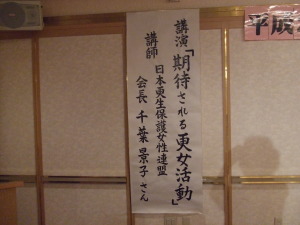 講演「期待される更女活動」
講師
日本更生保護女性連盟
会長 千葉景子さん
平成